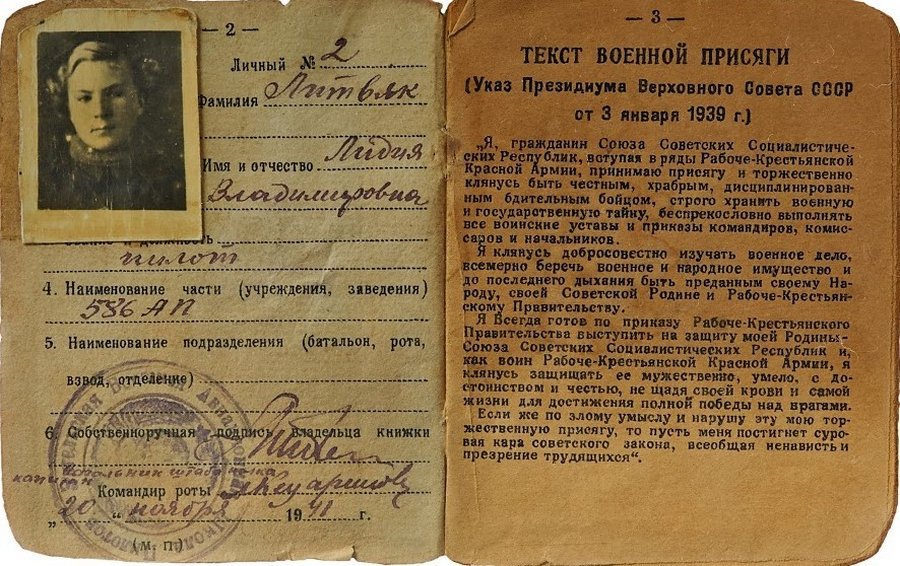 — 2 —
Личный № 2
Фамилия Литвяк
Имя и отчество Лидия
Владимировна
пилот
4. Наименование части (учреждения, заведения)
586 АП
5. Наименование подразделения (батальон, рота,
взвод, отделение)
6. Собственноручная подпись владельца книжки
капитан начальник штаба полка
Командир роты
„20“ ноября 1941 г.
(М. П.)
— 3 —
ТЕКСТ ВОЕННОЙ ПРИСЯГИ
(Указ Президиума Верховного Совета СССР
от 3 января 1939 г.)
„Я, гражданин Союза Советских Социалистиче-
ских Республик, вступая в ряды Рабоче-Крестьянской
Красной Армии, принимаю присягу и торжественно
клянусь быть честным, храбрым, дисциплинирован-
ным бдительным бойцом, строго хранить военную
и государственную тайну, беспрекословно выполнять
все воинские уставы и приказы командиров, комис-
саров и начальников.
Я клянусь добросовестно изучать военное дело,
всемерно беречь военное и народное имущество и
до последнего дыхания быть преданным своему На-
роду, своей Советской Родине и Рабоче-Крестьян-
скому Правительству.
Я Всегда готов по приказу Рабоче-Крестьянского
Правительства выступить на защиту моей Родины-
Союза Советских Социалистических Республик и,
как воин Рабоче-Крестьянской Красной Армии, я
клянусь защищать ее мужественно, умело, с до-
стоинством и честью, не щадя своей крови и самой
жизни для достижения полной победы над врагами.
Если же по злому умыслу я нарушу эту мою тор-
жественную присягу, то пусть меня постигнет суро-
вая кара советского закона, всеобщая ненависть и
презрение трудящихся“.